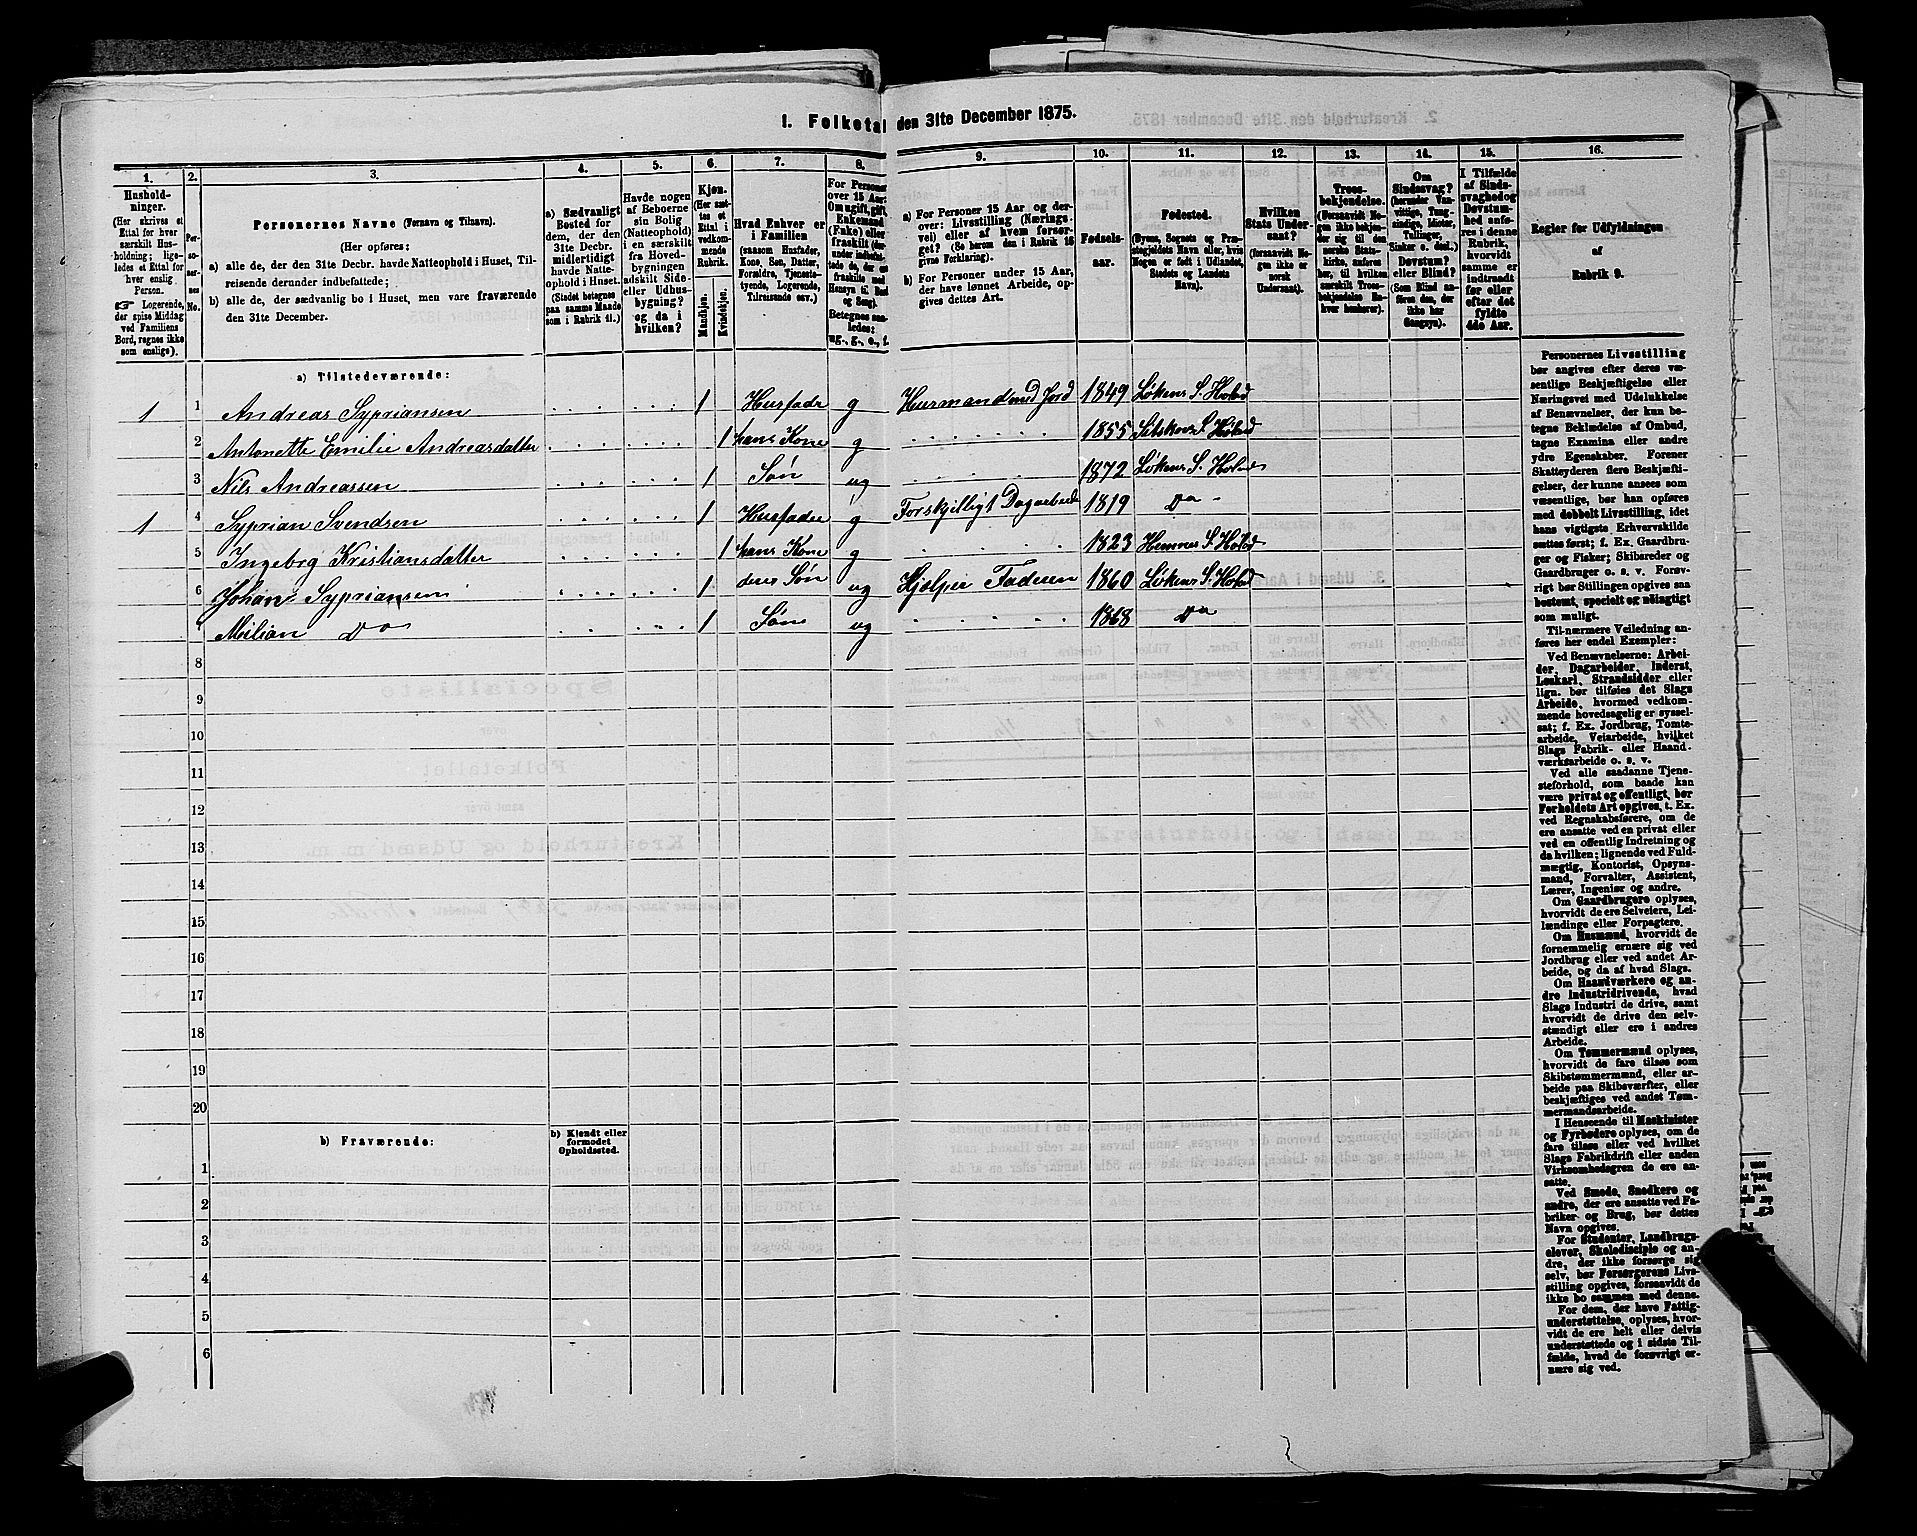 1. Folketal den 31te December 1875.
1. 2. 3. 4. 5. 6. 7. 8. 9. 10. 11. 12. 13. 14. 15. 16.
Husholdninger. (Her skrives et Ettal for hver særskilt Husholdning; ligeledes et Ettal for hver enslig Person. ☞ Logerende, der spise Middag ved Familiens Bord, regnes ikke som enslige).
Personernes No.
Personernes Navne (Fornavn og Tilnavn).
(Her opføres:
a) alle de, der den 31te Decbr. havde Natteophold i Huset, Tilreisende derunder indbefattede;
b) alle de, der sædvanlig bo i Huset, men vare fraværende den 31te December.
a) Sædvanligt Bosted for dem, der den 31te Decbr. midlertidigt havde Natteophold i Huset. (Stedet betegnes paa samme Maade som i Rubrik 11.)
Havde nogen af Beboerne sin Bolig (Natteophold) i en særskilt fra Hovedbygningen adskilt Side- eller Udhusbygning? og da i hvilken?
Kjøn. (Her sættes et Ettal i vedkommende Rubrik.
Mandkjøn. Kvindekjøn.
Hvad Enhver er i Familien (saasom Husfader, Kone, Søn, Datter, Forældre, Tjenestetyende, Logerende, Tilreisende osv.)
For Personer over 15 Aar: Om ugift, gift, Enkemand (Enke) eller fraskilt
Betegnes saaledes: ug., g., e., f.
a) For Personer 15 Aar og derover: Livsstilling (Næringsvei) eller af hvem forsørget? (Se herom den i Rubrik 16 givne Forklaring).
b) For Personer under 15 Aar, der have lønnet Arbeide, opgives dettes Art.
Fødselsaar.
Fødested. (Byens, Sognets og Præstegjeldets Navn eller, hvis Nogen er født i Udlandet, Stedets og Landets Navn).
Hvilken Stats Undersaat? (forsaavidt Nogen ikke er norsk Undersaat).
Troesbekjendelse. (Forsaavidt Nogen ikke bekjender sig til den norske Statskirke, anføres her, til hvilken særskilt Troesbekjendelse Enhver henhører).
Om Sindssvag? (herunder Vanvittige, Tungsindige, Idioter, Tullinger, Sinker o. desl.) Døvstum? eller Blind? (Som Blind anføres den, der ikke har Gangsyn).
I Tilfælde af Sindssvaghed og Døvstumhed anføres i denne Rubrik, hvorvidt samme er indtraadt før eller efter det fyldte 4de Aar.
Regler for Udfyldningen af Rubrik 9.
a) Tilstedeværende:
1 1 Andreas Sypriansen 1 Husfader g Husmand med Jord 1849 Løkens S. Høland
2 Antonette Emilie Andreasdatter 1 hans Kone g 1855 Setskovs S. Høland
3 Nils Andreassen 1 Søn ug 1872 Løkens S. Høland
1 4 Syprian Svendsen 1 Husfader g Forskjelligt Dagarbeide 1819 Do
5 Ingeborg Kristiansdatter 1 hans Kone g 1823 Hemnes S. Høland
6 Johan Sypriansen 1 deres Søn ug Hjelper Faderen 1860 Løkens S. Høland
7 Milian Do 1 Søn ug 1868 Do
8
9
10
11
12
13
14
15
16
17
18
19
20
b) Fraværende:
b) Kjendt eller formodet Opholdssted.
1
2
3
4
5
6
Personernes Livsstilling
bør angives efter deres væsentlige Beskjæftigelse eller
Næringsvei med Udelukkelse
af Benævnelser, der kun betegne Beklædelse af Ombud,
tagne Examina eller andre
ydre Egenskaber. Forener
Skatteyderen flere Beskjæftigelser, der kunne ansees som
væsentlige, bør han opføres
med dobbelt Livsstilling, idet
hans vigtigste Erhvervskilde
sættes først; f. Ex. Gaardbruger og Fisker; Skibsreder og
Gaardbruger o. s. v. Forøvrigt bør Stillingen opgives saa
bestemt, specielt og nøiagtigt
som muligt.
Til nærmere Veiledning anføres her endel Exempler:
Ved Benævnelserne: Arbeider, Dagarbeider, Inderst,
Løskarl, Strandsidder eller
lign. bør tilføies det Slags
Arbeide, hvormed vedkommende hovedsagelig er sysselsat; f. Ex. Jordbrug, Tomtearbeide, Veiarbeide, hvilket
Slags Fabrik- eller Haandværksarbeide o. s. v.
Ved alle saadanne Tjenesteforhold, som baade kan
være privat og offentligt, bør
Forholdets Art opgives, t. Ex.
ved Regnskabsførere, om de
ere ansatte ved en privat eller
ved en offentlig Indretning og
da hvilken; lignende ved Fuldmægtig, Kontorist, Opsynsmand, Forvalter, Assistent,
Lærer, Ingeniør og andre.
Om Gaardbrugere oplyses,
hvorvidt de ere Selveiere, Leilændinge eller Forpagtere.
Om Husmænd, hvorvidt de
fornemmelig ernære sig ved
Jordbrug eller ved andet Arbeide, og da af hvad Slags.
Om Haandværkere og andre Industridrivende, hvad
Slags Industri de drive, samt
hvorvidt de drive den selvstændigt eller ere i andres
Arbeide.
Om Tømmermænd oplyses,
hvorvidt de fare tilsøs som
Skibstømmermænd, eller arbeide paa Skibsværfter, eller
beskjæftiges ved andet Tømmermandsarbeide.
I Henseende til Maskinister
og Fyrbødere oplyses, om de
fare tilsøs eller ved hvilket
Slags Fabrikdrift eller anden
Virksomhedsgren de ere ansatte.
Ved Smede, Snedkere og
andre, der ere ansatte ved Fabriker og Brug, bør dettes
Navn opgives.
For Studenter, Landbrugselever, Skoledisciple og andre, der ikke forsørge sig
selv, bør Forsørgerens Livsstilling opgives, forsaavidt de
ikke bo sammen med denne.
For dem, der have Fattigunderstøttelse, oplyses, hvorvidt de ere helt eller delvis
understøttede og i sidste Tilfælde, hvad de forøvrigt ernære sig ved.